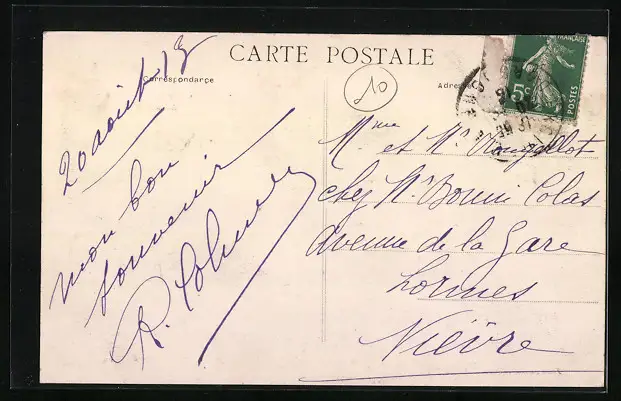 CARTE POSTALE
Correspondance
Adres
10
FRANÇAISE
5c
POSTES
20 août 13
mon bon
souvenir
R.
Mme et Mr
chez Mr Bonni Colas
Avenue de la Gare
Lormes
Nièvre